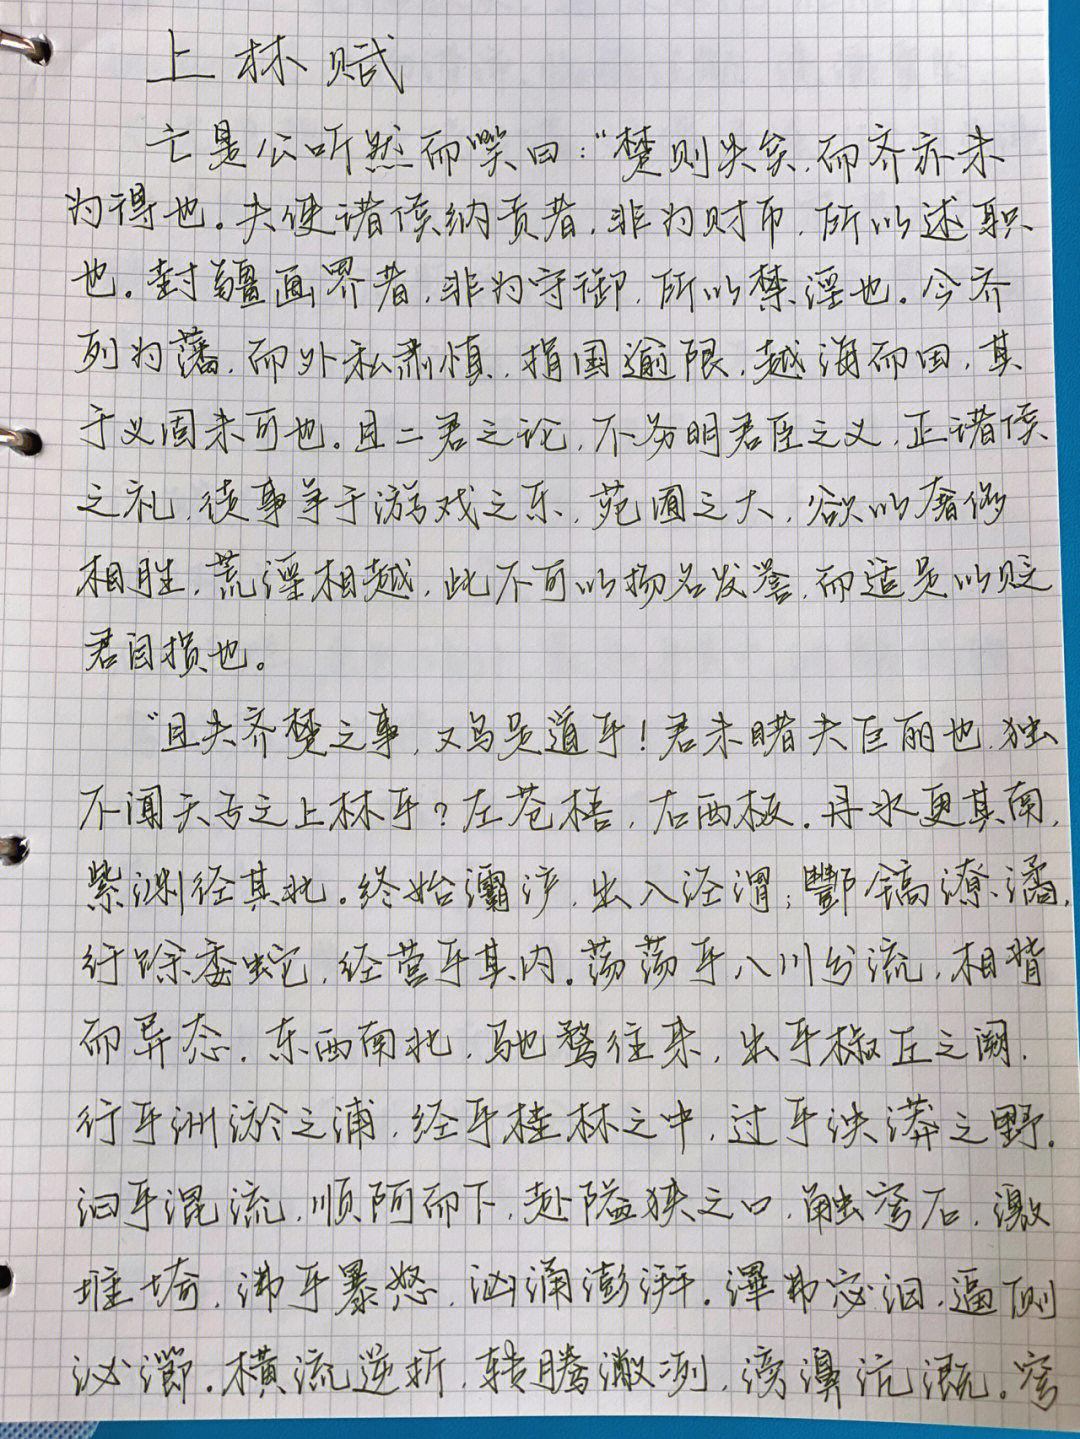 上林赋
亡是公听然而笑曰：“楚则失矣，而齐亦未
为得也。夫使诸侯纳贡者，非为财币，所以述职
也。封疆画界者，非为守御，所以禁淫也。今齐
列为藩，而外私肃慎，捐国逾限，越海而田，其
于义固未可也。且二君之论，不务明君臣之义，正诸侯
之礼，徒事争于游戏之乐，苑囿之大，欲以奢侈
相胜，荒淫相越，此不可以扬名发誉，而适足以贬
君自损也。
“且夫齐楚之事，又乌足道乎！君未睹夫巨丽也，独
不闻天子之上林乎？左苍梧，右西极。丹水更其南，
紫渊径其北。终始灞浐，出入泾渭；酆镐潦潏，
纡馀委蛇，经营乎其内。荡荡乎八川分流，相背
而异态。东西南北，驰骛往来，出乎椒丘之阙，
行乎洲淤之浦，经乎桂林之中，过乎泱漭之野。
汩乎混流，顺阿而下，赴隘狭之口，触穹石，激
堆埼，沸乎暴怒，汹涌澎湃。滭弗宓汩，逼侧
泌瀄。横流逆折，转腾潎洌，滂濞沆溉。穹